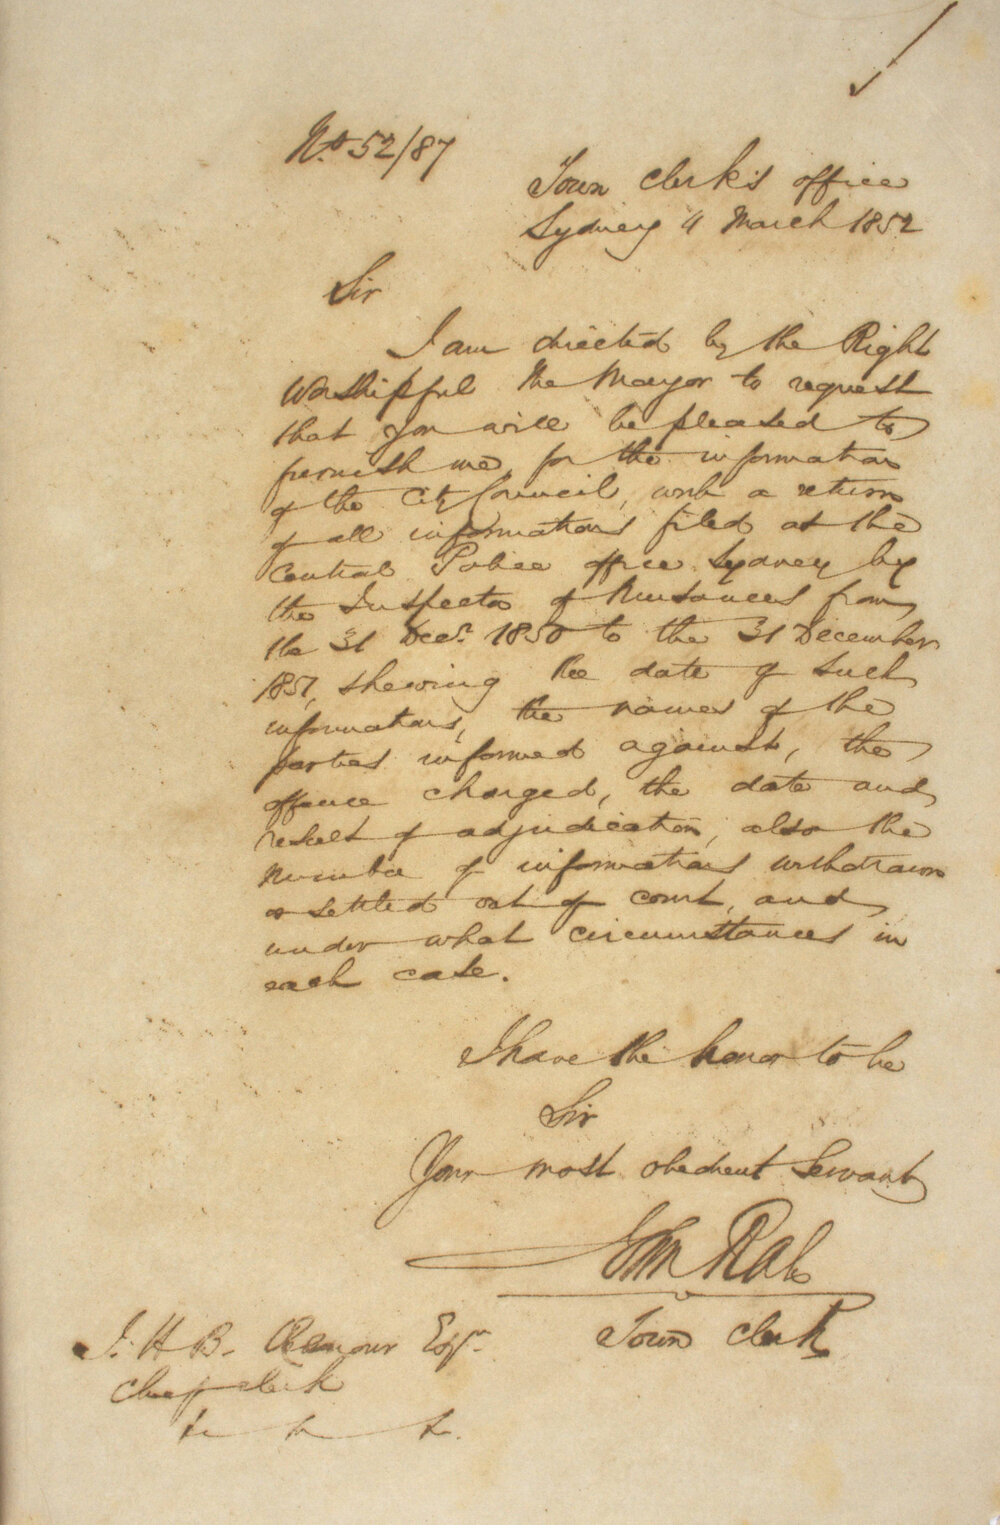 No. 52/87
Town Clerk's office
Sydney 4 March 1852
Sir
I am directed by the Right
Worshipful the Mayor to request
that you will be pleased to
furnish me, for the information
of the City Council, with a return
of all informations filed at the
Central Police office Sydney by
the Inspector of Nuisances from
the 31 Decr. 1850 to the 31 December
1851, shewing the date of such
informations, the names of the
parties informed against, the
offence charged, the date and
result of adjudication, also the
number of informations withdrawn
or settled out of court, and
under what circumstances in
each case.
I have the honor to be
Sir
Your most obedient Servant
John Rae
Town Clerk
J. H. B. Esqr.
Chief clerk